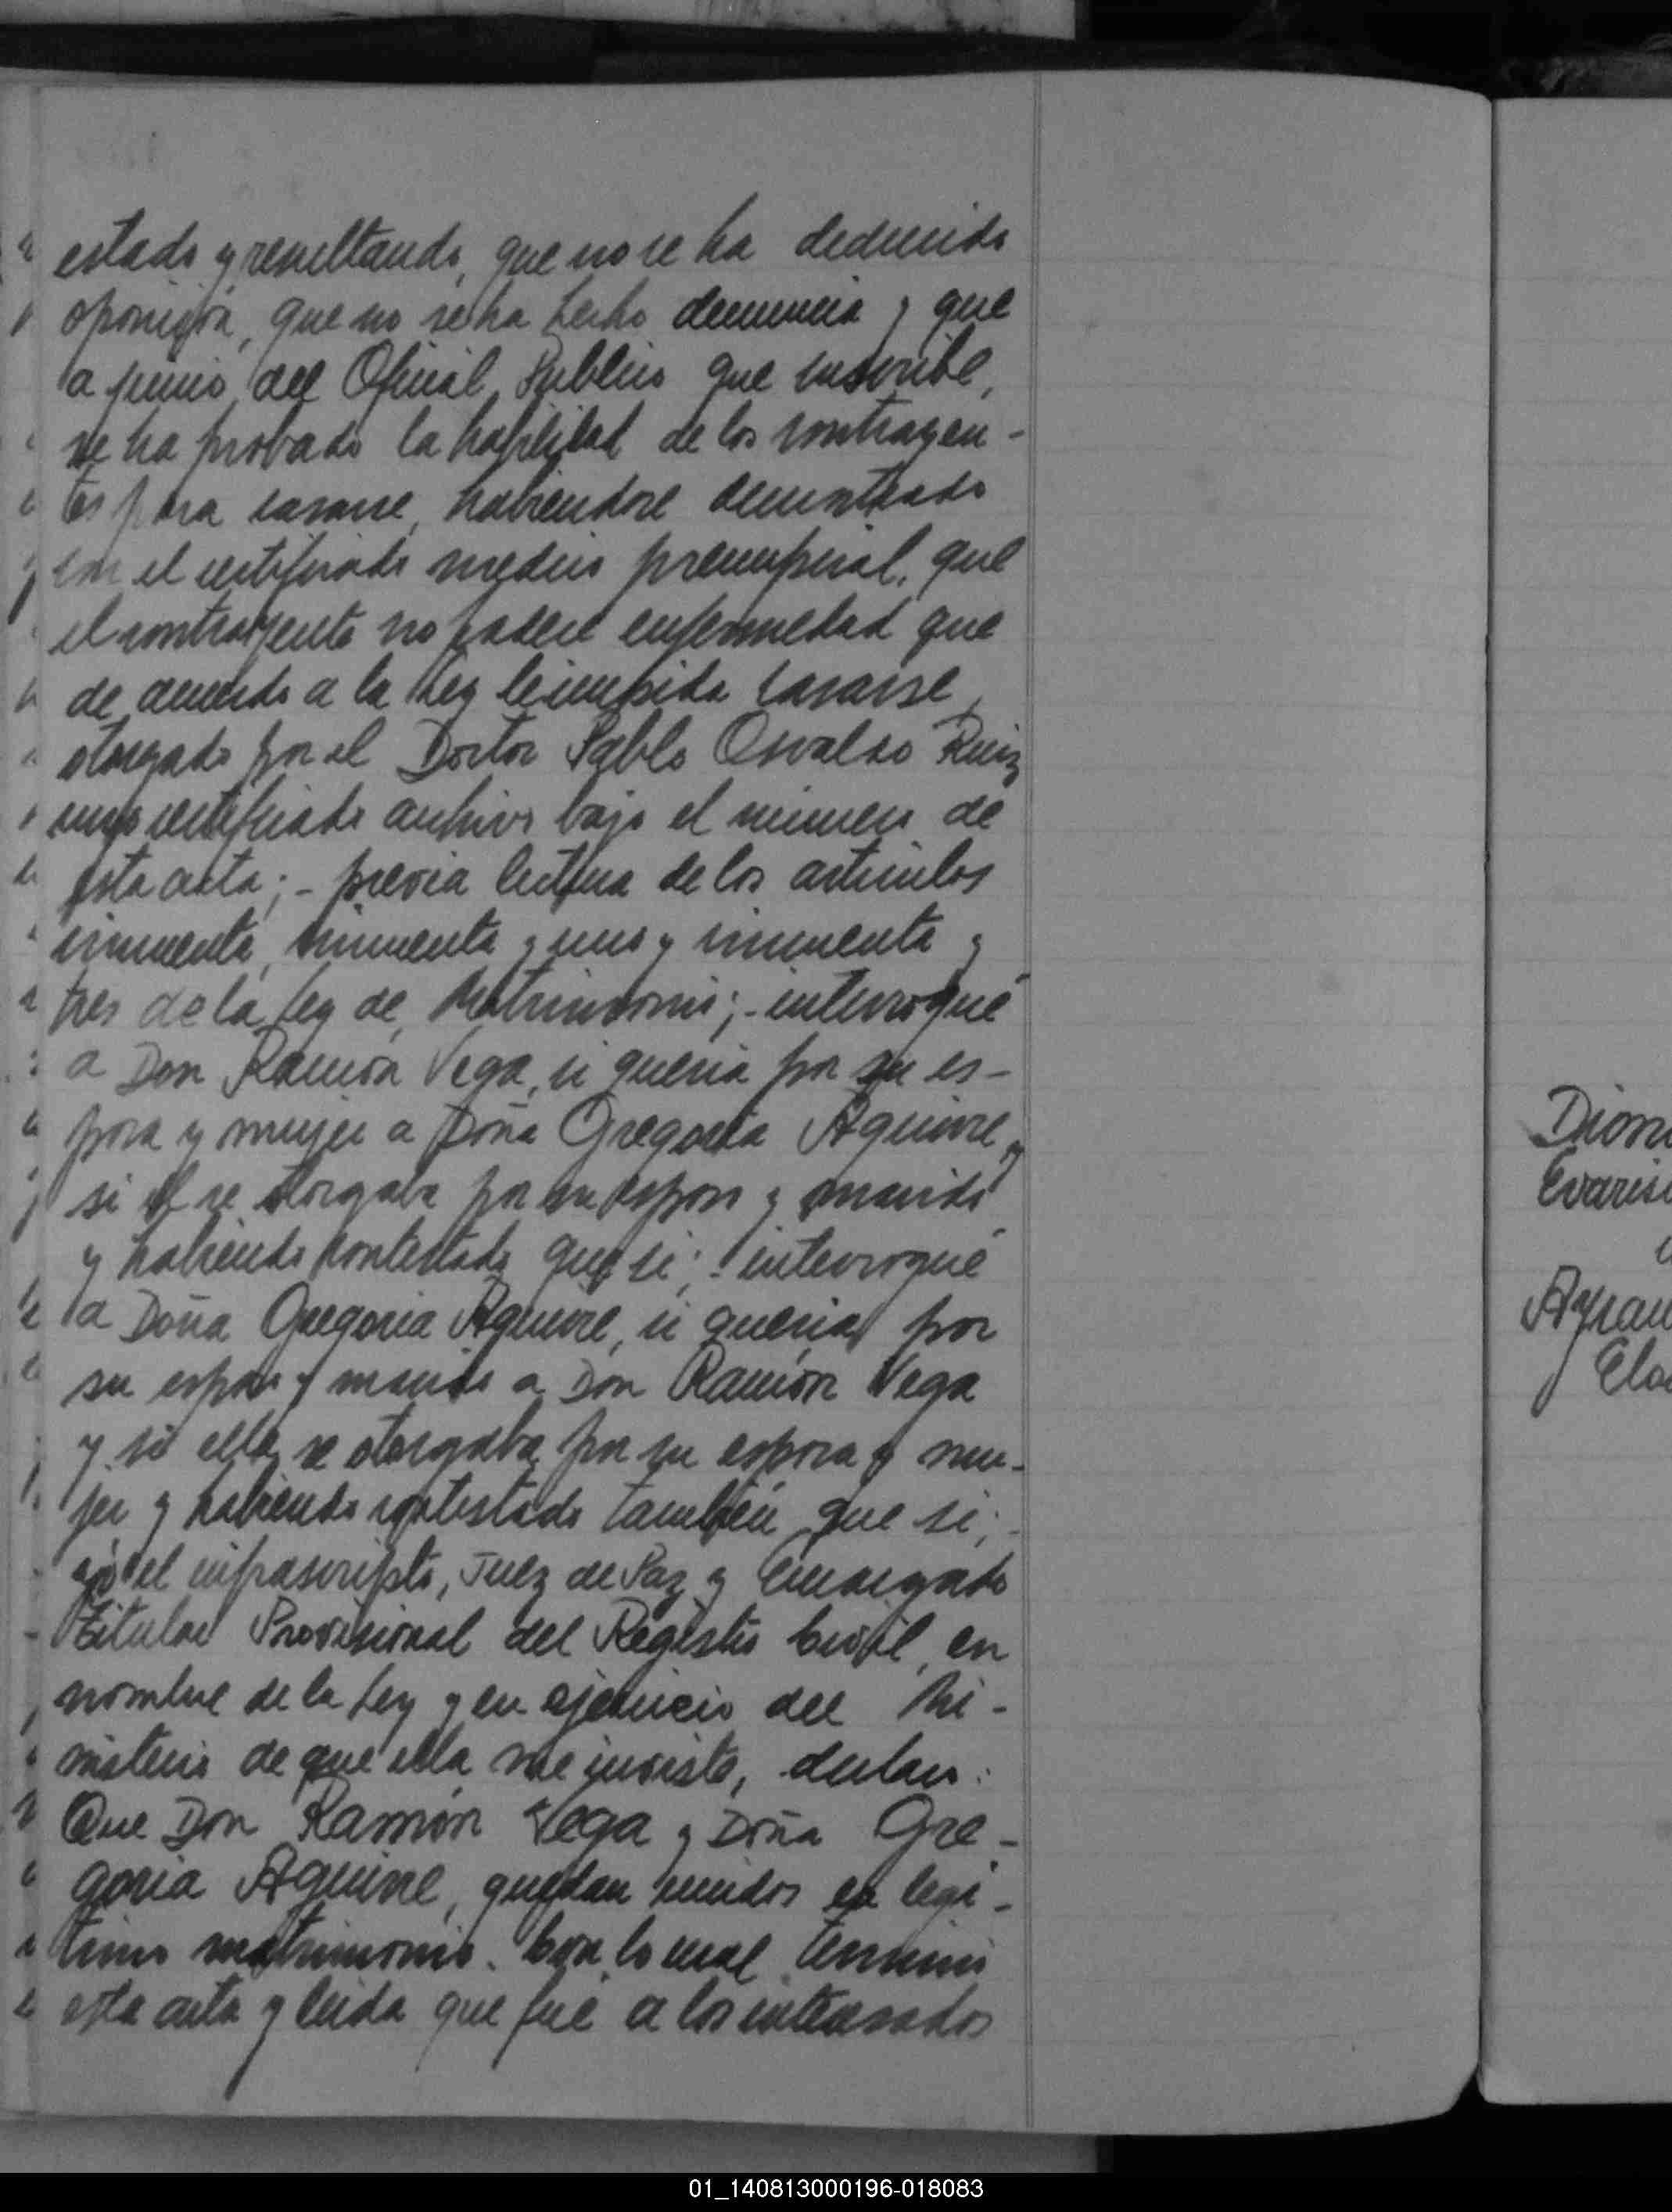 estado y resultando, que no se ha deducido
oposición, que no se ha hecho denuncia y que
a juicio del Oficial Publico que suscribe,
se ha probado la habilidad de los contrayen-
tes para casarse, habiendose demostrado
con el certificado medico prenupcial, que
el contrayente no padece enfermedad que
de acuerdo a la Ley le impida casarse,
otorgado por el Doctor Pablo Osvaldo Ruiz
cuyo certificado archivo bajo el numero de
esta acta; - previa lectura de los articulos
cincuenta, cincuenta y uno y cincuenta y
tres de la Ley de Matrimonio; - interrogué
a Don Ramón Vega, si queria por su es-
posa y mujer a Doña Gregoria Aguirre, y
si él se otorgaba por su esposo y marido
y habiendo contestado que si; - interrogué
a Doña Gregoria Aguirre, si queria por
su esposo y marido a Don Ramón Vega
y si ella se otorgaba por su esposa y mu-
jer y habiendo contestado también que si; -
yo el infrascripto, Juez de Paz y Encargado
Titular Provisional del Registro Civil, en
nombre de la Ley y en ejercicio del Mi-
nisterio de que ella me inviste, declaro:
Que Don Ramón Vega y Doña Gre-
goria Aguirre, quedan unidos en legi-
timo matrimonio. Con lo cual termino
esta acta y leida que fué a los interesados
Evaris
01_140813000196-018083